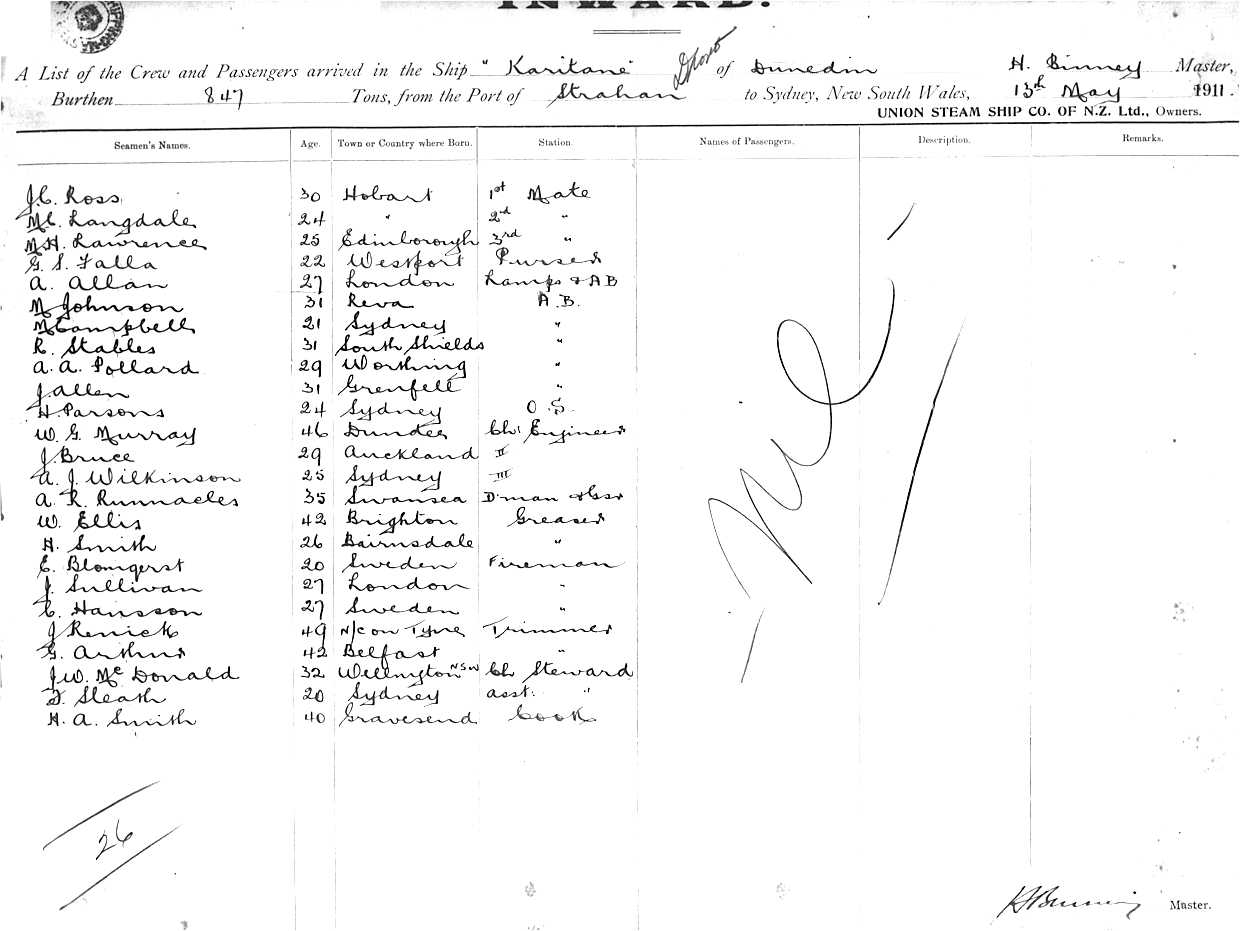 INWARD.
A List of the Crew and Passengers arrived in the Ship "Karitane" of Dunedin H. Binney Master,
Burthen 847 Tons, from the Port of Strahan to Sydney, New South Wales, 13th May 1911.
UNION STEAM SHIP CO. OF N.Z. Ltd., Owners.
Seamen's Names. Age. Town or Country where Born. Station Names of Passengers. Description. Remarks.
J.C. Ross 30 Hobart 1st Mate
M.C. Langdale 24 " 2nd "
M.H. Lawrence 25 Edinborough 3rd "
G. S. Falla 22 Westport Purser
A. Allan 27 London Lamps & AB
M Johnson 31 Reva A.B.
M Campbell 21 Sydney "
R. Stables 31 South Shields "
A. A. Pollard 29 Worthing "
J. Allen 31 Grenfell "
H. Parsons 24 Sydney O.S.
W. G. Murray 46 Dundee Ch. Engineer
J. Bruce 29 Auckland II
A. J. Wilkinson 25 Sydney III
A. R. Runnacles 35 Swansea D'man &
W. Ellis 42 Brighton Greaser
H. Smith 26 Bairnsdale "
E. Blomqerst 20 Sweden Fireman
J. Sullivan 27 London "
C. Hansson 27 Sweden "
J Renick 49 N/C on Tyne Trimmer
G. Arthur 42 Belfast "
J.W. McDonald 32 Wellington NSW Ch Steward
F. Sleath 20 Sydney asst. "
H. A. Smith 40 Gravesend Cook
Nil
26
Master.